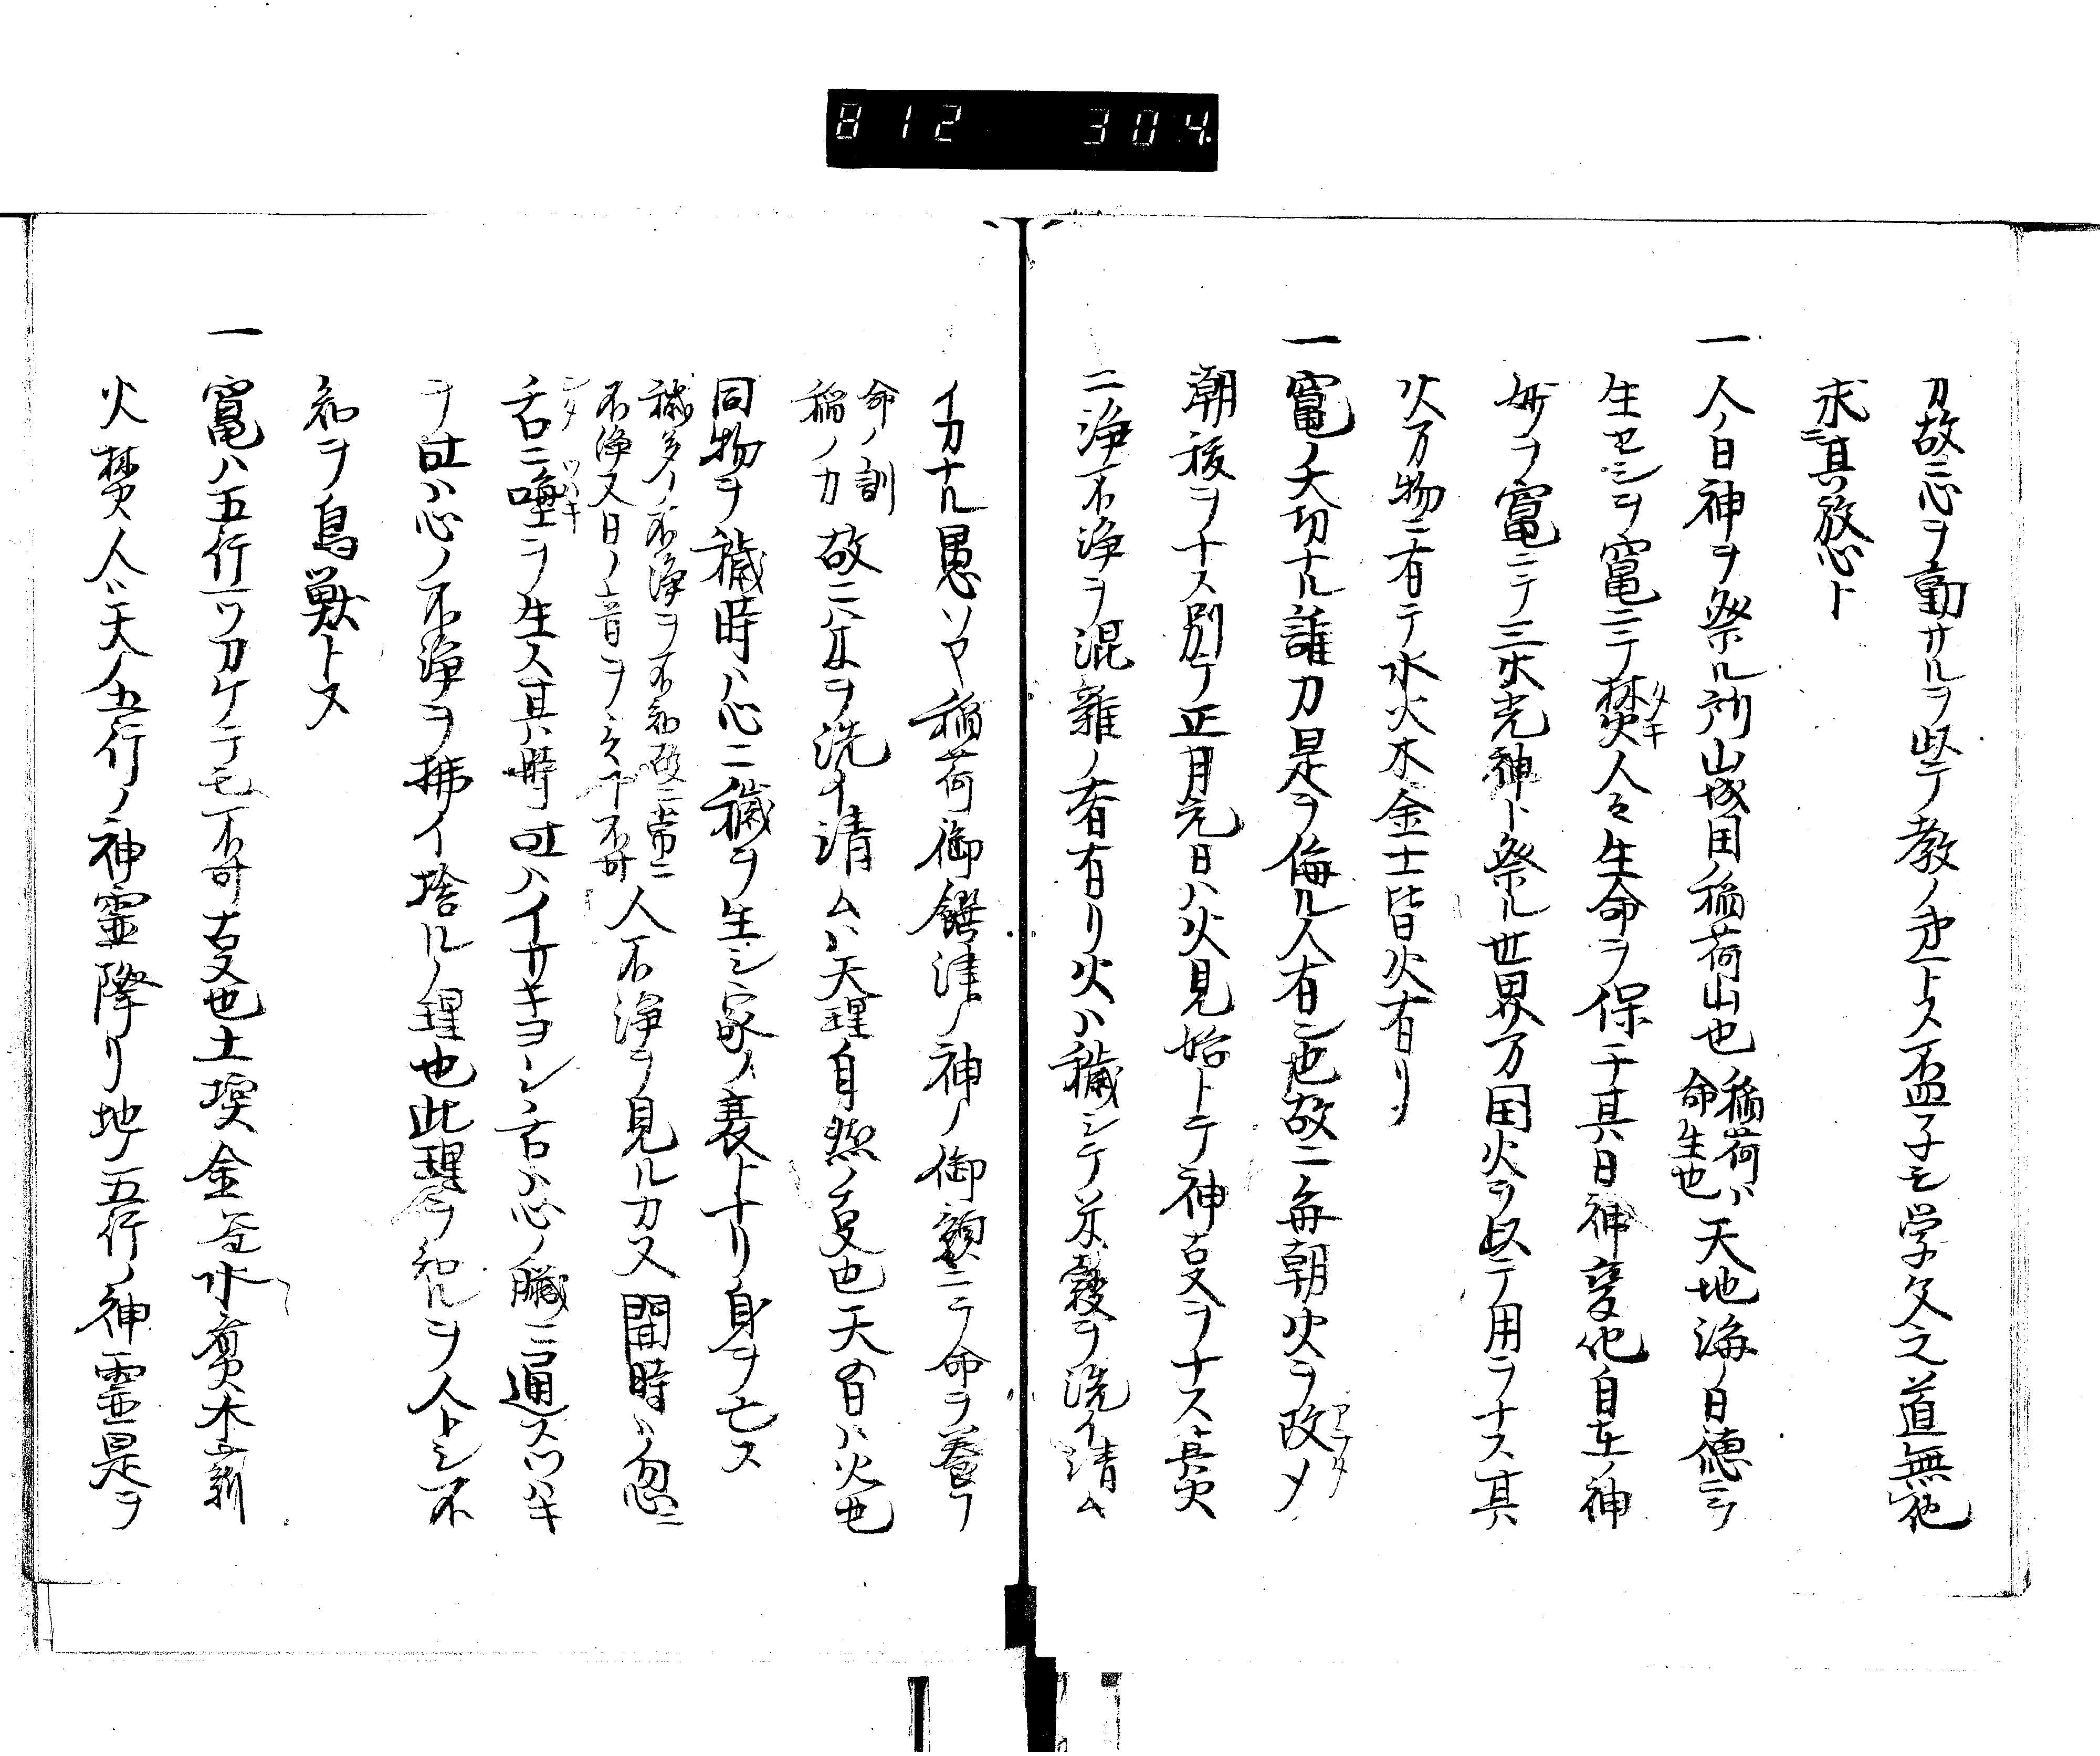 812 304
刀故ニ心ヲ動サルヲ以テ教ノ第一トス孟子モ学文之道無他
求ニ其放心ト
一人ノ日神ヲ祭ル所山城国稲荷山也稲荷ハ命生也天地海ノ日徳ニテ
生セシヲ竃ニテ焚人々生命ヲ保千其日神変化自在ノ神
タキ
妙ヲ竃ニテ三宝荒神ト祭ル世界万国火ヲ以テ用ヲナス其
火万物ニ有テ水火木金土皆火有リ
一竃ノ大切ナル誰カ是ヲ侮ル人有シ也故ニ毎朝火ヲ改メ
アラタ
潮祓ヲナス別テ正月元日ハ火見始トテ神事ヲナス其火
ニ浄不浄ヲ混雑ノ者有リ火ハ穢シテ米穀ヲ洗イ清ム
イカナル愚ソヤ稲荷御饌津ノ神ノ御魂ニテ命ヲ養フ
命ノ訓
稲ノカ
故ニ米ヲ洗イ清ムハ天理自然ノ事也天の日ハ火也
同物ヲ穢時ハ心ニ穢ヲ生シ家ノ衰トナリ身ヲ亡ス
穢多ノ不浄ヲ不知故ニ常ニ
不浄又日ノ音ヲ
人不浄ヲ見ルカ又聞時ハ忽ニ
舌ニ唾ヲ生ス其時吐ハイサキヨシ舌ハ心ノ臓ニ通スツハキ
シタ ツハキ
ヲ吐ハ心ノ不浄ヲ拂イ捨ルノ理也此理ヲ知ルヲ人トシ不
知ヲ鳥獣トス
一竃ハ五行一ツカケテモ不可古又也土塊金釜水煎木薪
火焚人ハ天ノ五行ノ神霊降リ地ノ五行ノ神霊是ヲ